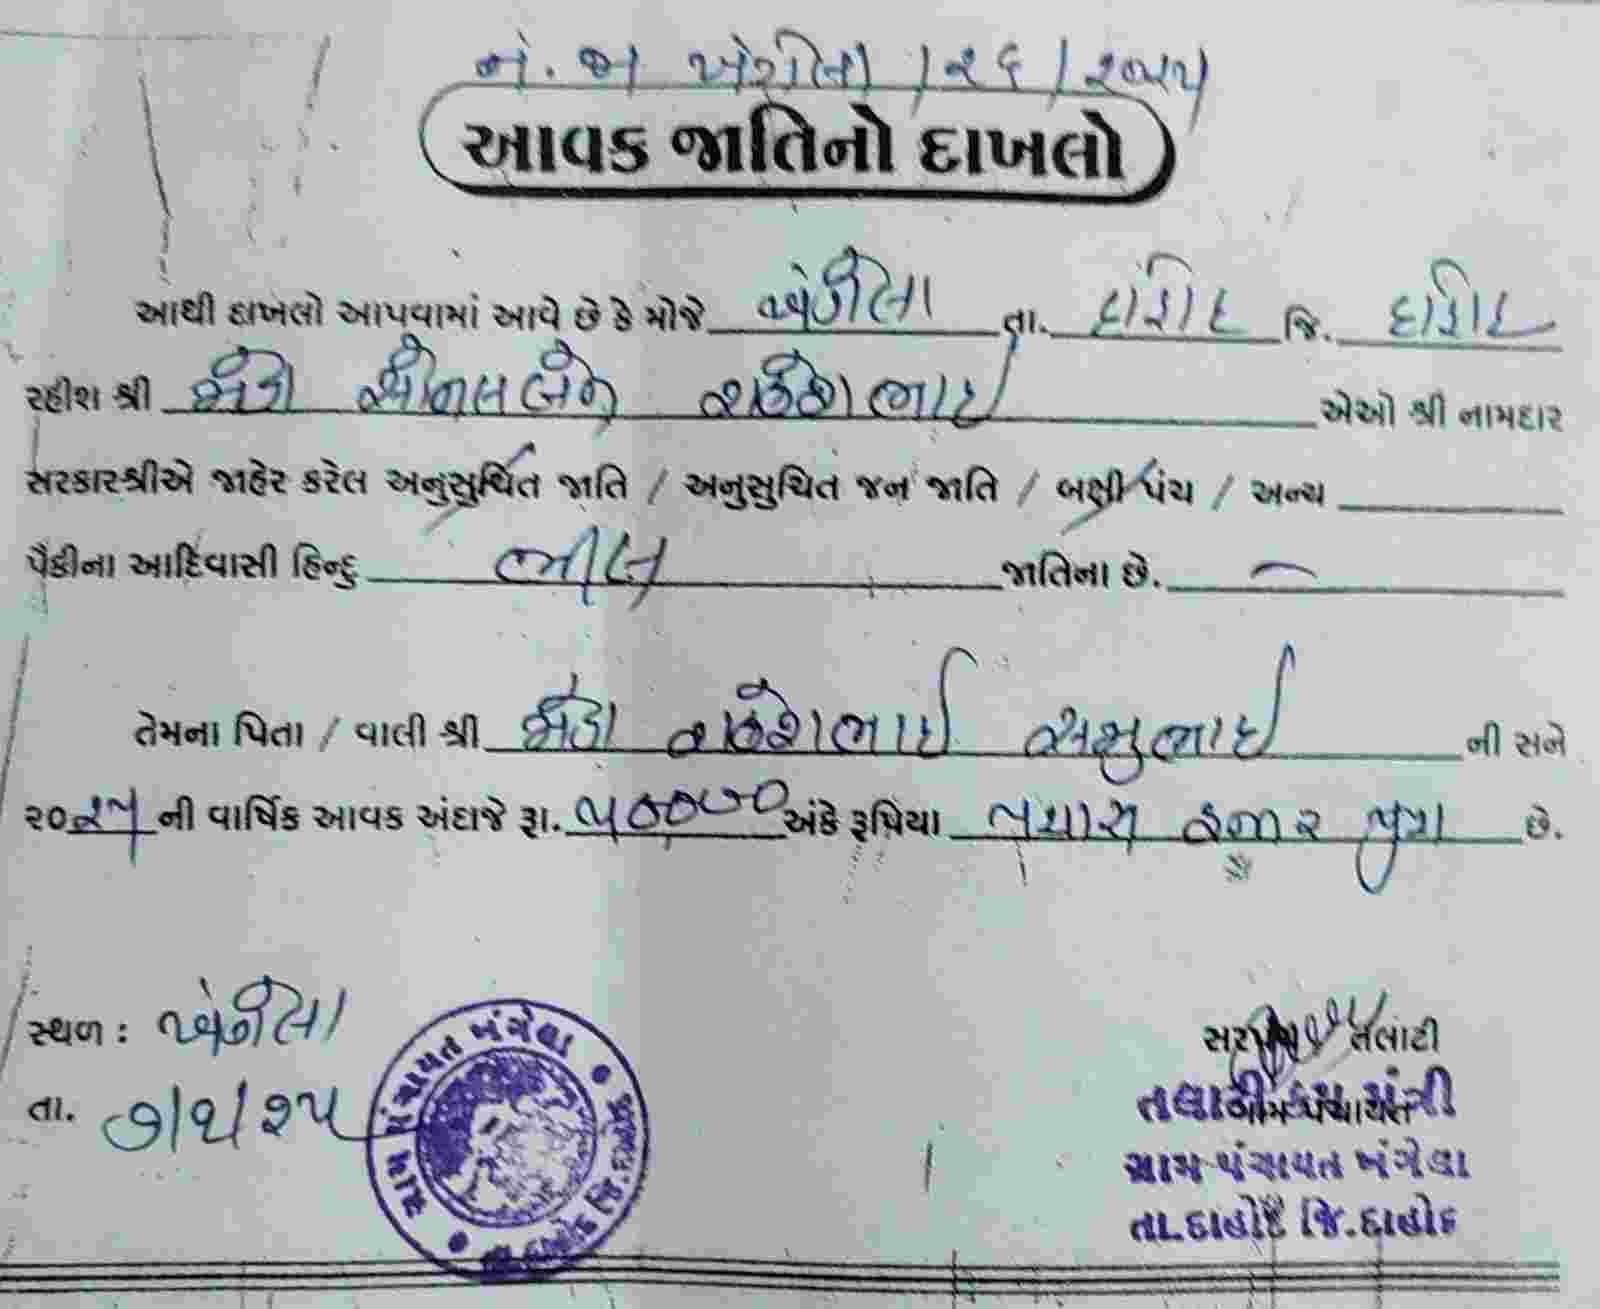 નં. જા ખંગેલા / ૨૬ / ૨૦૨૫
આવક જાતિનો દાખલો
આથી દાખલો આપવામાં આવે છે કે મોજે ખંગેલા તા. દાહોદ જિ. દાહોદ
રહીશ શ્રી મેડા સોનલબેન રાકેશભાઈ એઓ શ્રી નામદાર
સરકારશ્રીએ જાહેર કરેલ અનુસુચિત જાતિ / અનુસુચિત જન જાતિ / બક્ષી પંચ / અન્ય
પૈકીના આદિવાસી હિન્દુ ભીલ જાતિના છે.
તેમના પિતા / વાલી શ્રી મેડા રાકેશભાઈ ની સને
૨૦૨૫ ની વાર્ષિક આવક અંદાજે રૂા. ૫૦૦૦૦ અંકે રૂપિયા પચાસ હજાર પુરા છે.
સ્થળ : ખંગેલા
તા. ૭/૧/૨૫
ગ્રામ પંચાયત ખંગેલા
સરપંચ તલાટી
ગ્રામ પંચાયત
તલાટી કમ મંત્રી
ગ્રામ પંચાયત ખંગેલા
તા.દાહોદ જિ.દાહોદ